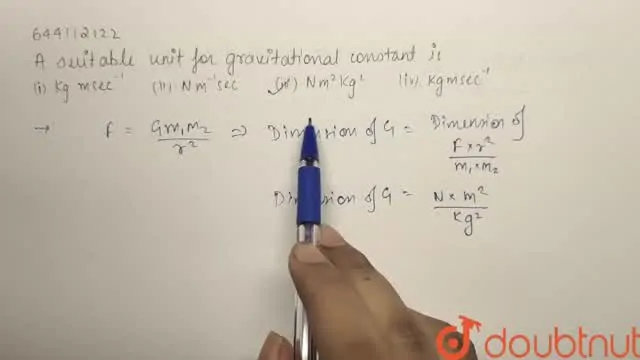 644112122
A suitable unit for gravitational constant is
(i) Kg msec⁻¹ (ii) Nm⁻¹sec (iii) Nm²Kg¹ (iv) Kgmsec⁻¹
→ F = Gm₁m₂/r² ⇒ Dimension of G = Dimension of F×r²/m₁×m₂
Dimension of G = N×m²/Kg²
doubtnut